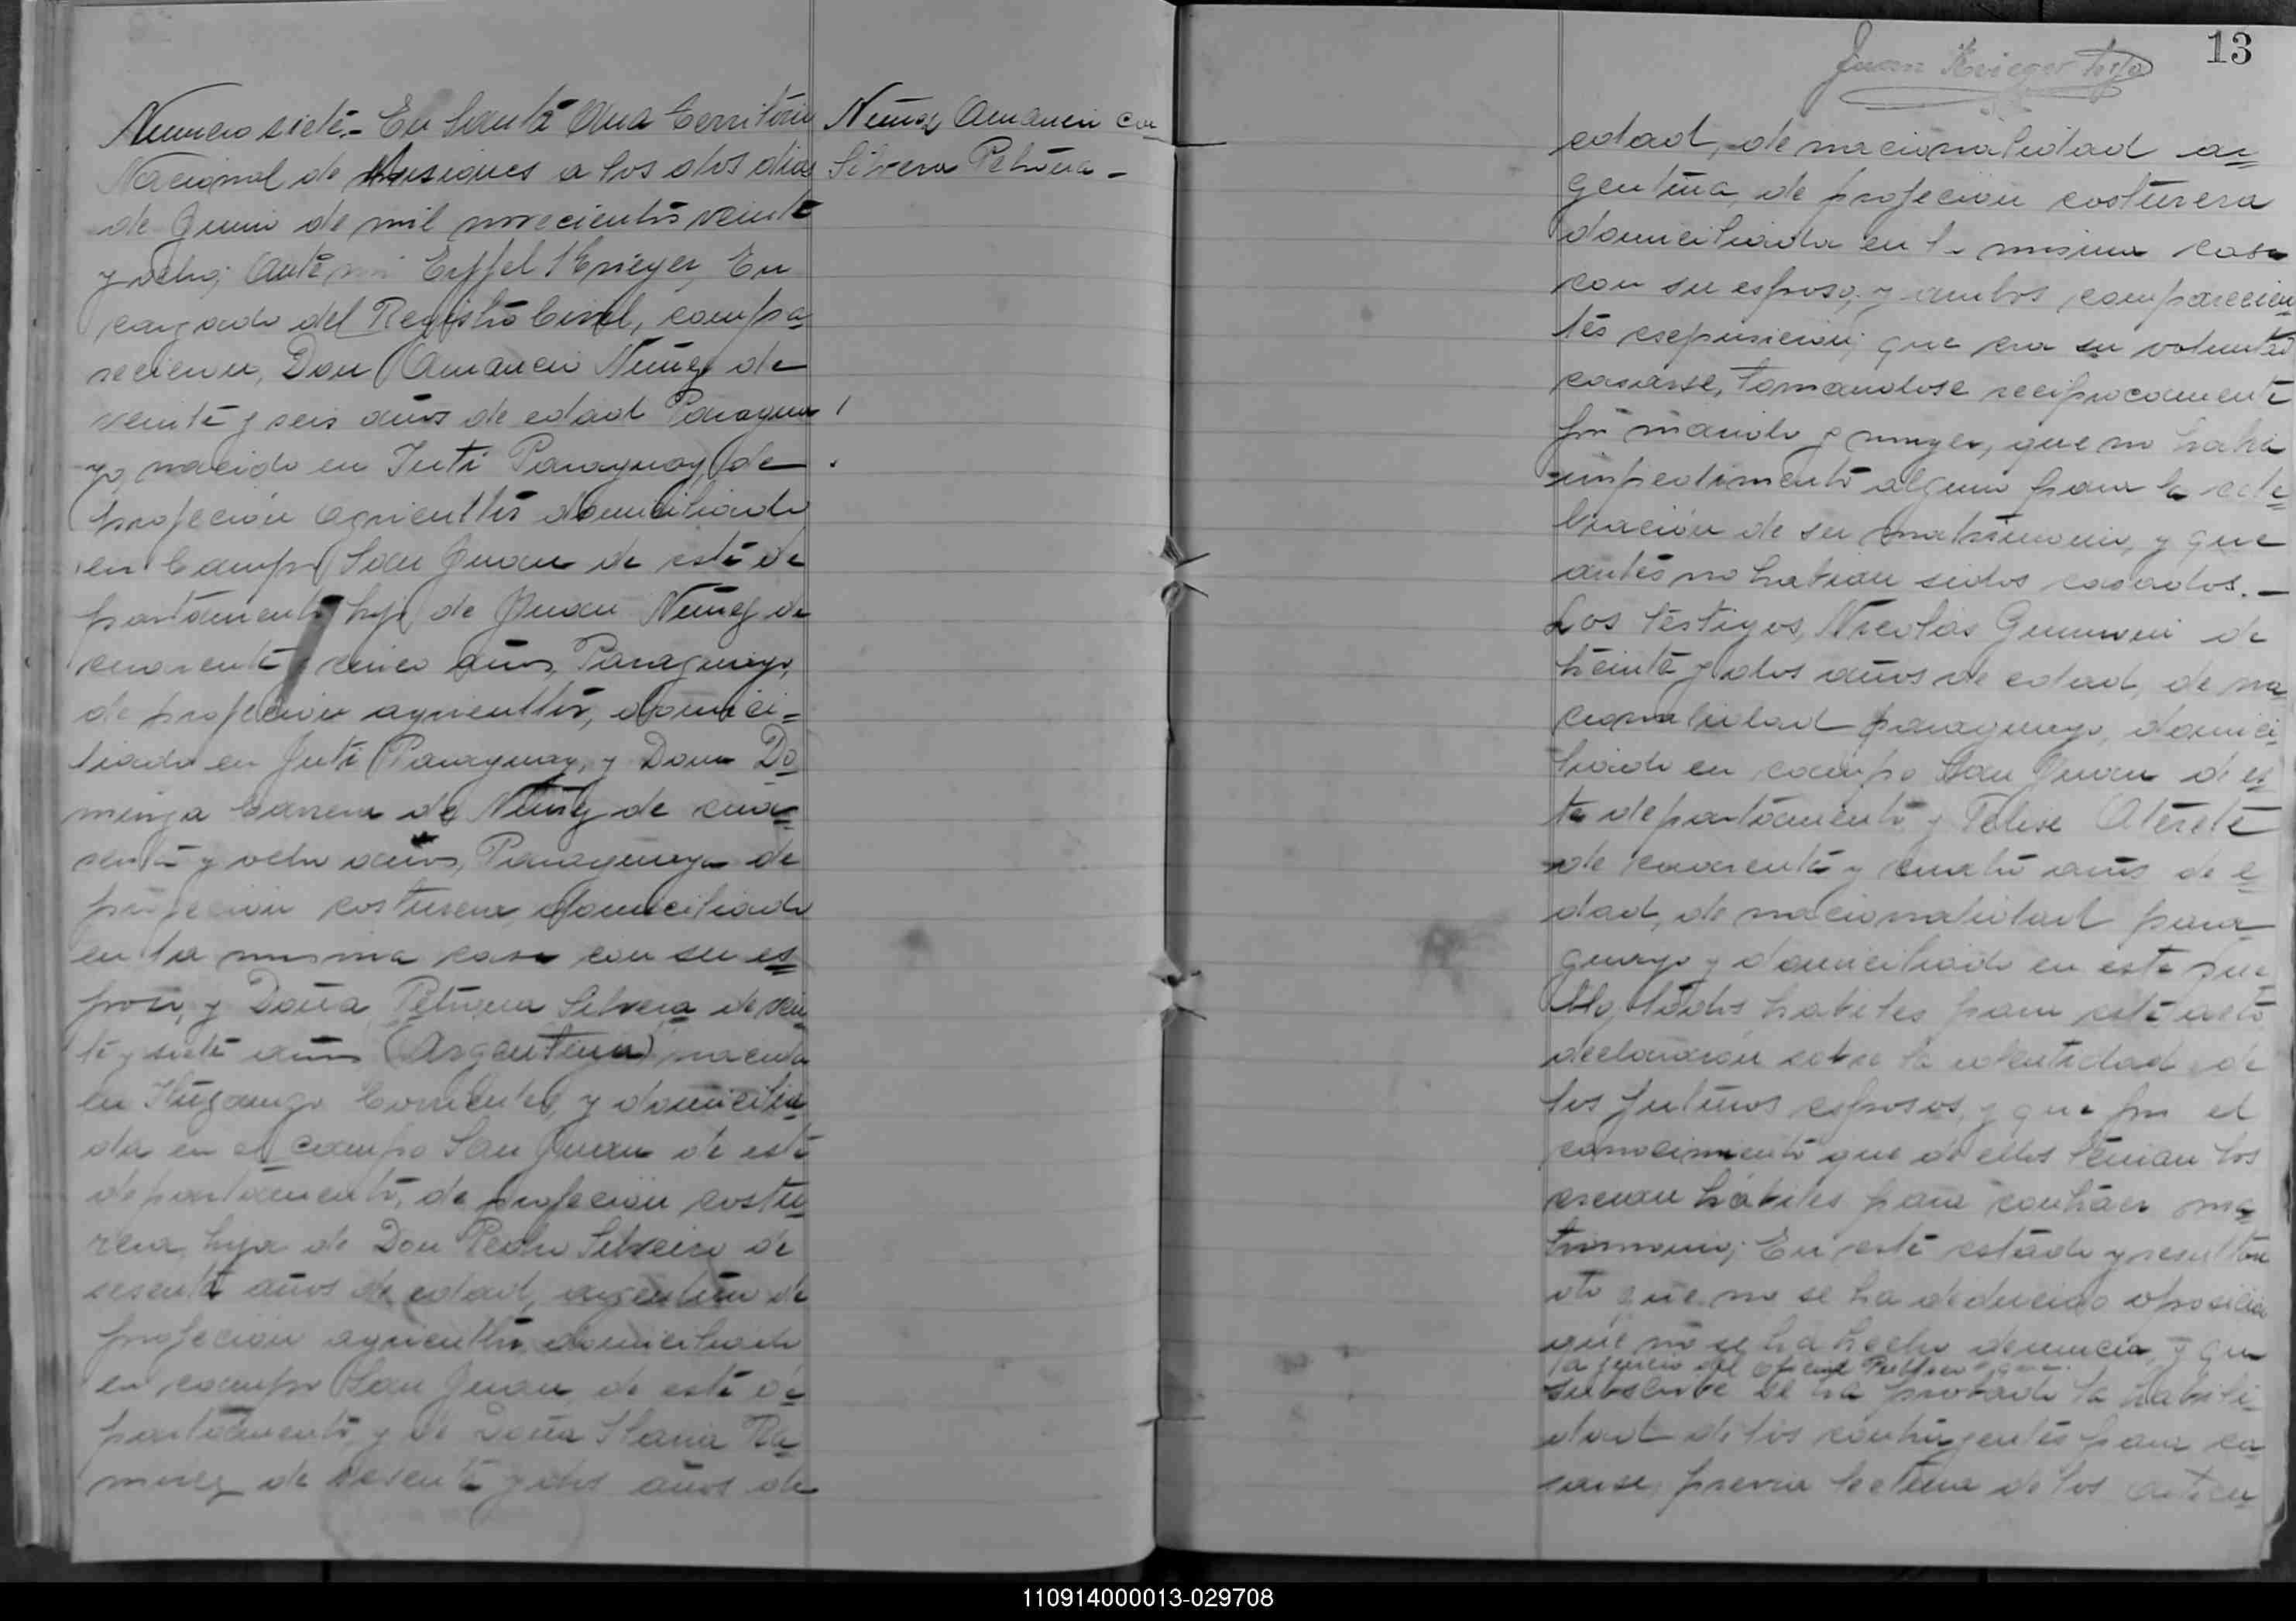 Numero siete.- En Santa Ana Territorio
Nacional de Misiones a los dos dias
de Junio de mil novecientos veinte
y ocho; Ante mi Eiffel Krieger, En
cargado del Registro Civil, compa=
recieron, Don Amancio Nuñez de
veinte y seis años de edad Paragua
yo, nacido en Iuti Paraguay, de
profecion agricultor domiciliado
en Campo San Juan de este de
partamento hijo de Juan Nuñez de
cuarenta y cinco años, Paraguayo,
de profecion agricultor, domici=
liado en Juti Paraguay, y Dona Do=
minga Barrera de Nuñez de cua=
renta y ocho años, Paraguaya de
profecion costurera, domiciliada
en la misma casa con su es=
poso, y Doña Petrona Silvera de vein=
te y siete años (Argentina) nacida
en Ituzaingo Corrientes, y domicilia=
da en el campo San Juan de este
departamento, de profecion costu=
rera, hija de Don Pedro Silveira de
sesenta años de edad, argentino de
profecion agricultor domiciliado
en campo San Juan, de este de=
partamento, y de Doña Maria Ra=
mirez de sesenta y dos años de
Nuñez Amancio con
Silvera Petrona -
Juan Krieger hijo
13
edad, de nacionalidad ar=
gentina, de profecion costurera
domiciliada en la misma casa
con su esposo, y ambos comparecien=
tes espusieron; que era su voluntad
casarse, tomandose reciprocamente
por marido y muger, que no habia
impedimento alguno para la cele=
bracion de su matrimonio, y que
antes no habian sidos casados. -
Los testigos, Nicolas Gimenez de
treinta y dos años de edad, de na=
cionalidad paraguayo, domici=
liado en campo San Juan de es=
te departamento y Felise
de cuarenta y cuatro años de e=
dad, de nacionalidad para=
guayo y domiciliado en este pue=
blo, todos habiles para este acto
declararon sobre la identidad de
los futuros esposos, y que por el
conocimiento que de ellos tenian los
creian habiles para contraer ma=
trimonio; En este estado y resultan
do que no se ha deducido oposicion
que no se ha hecho denuncia, y que
a juicio del oficial Publico que
subscribe se ha probado la habili=
dad de los contrayentes para ca=
sarse, previa lectura de los articu=
110914000013-029708